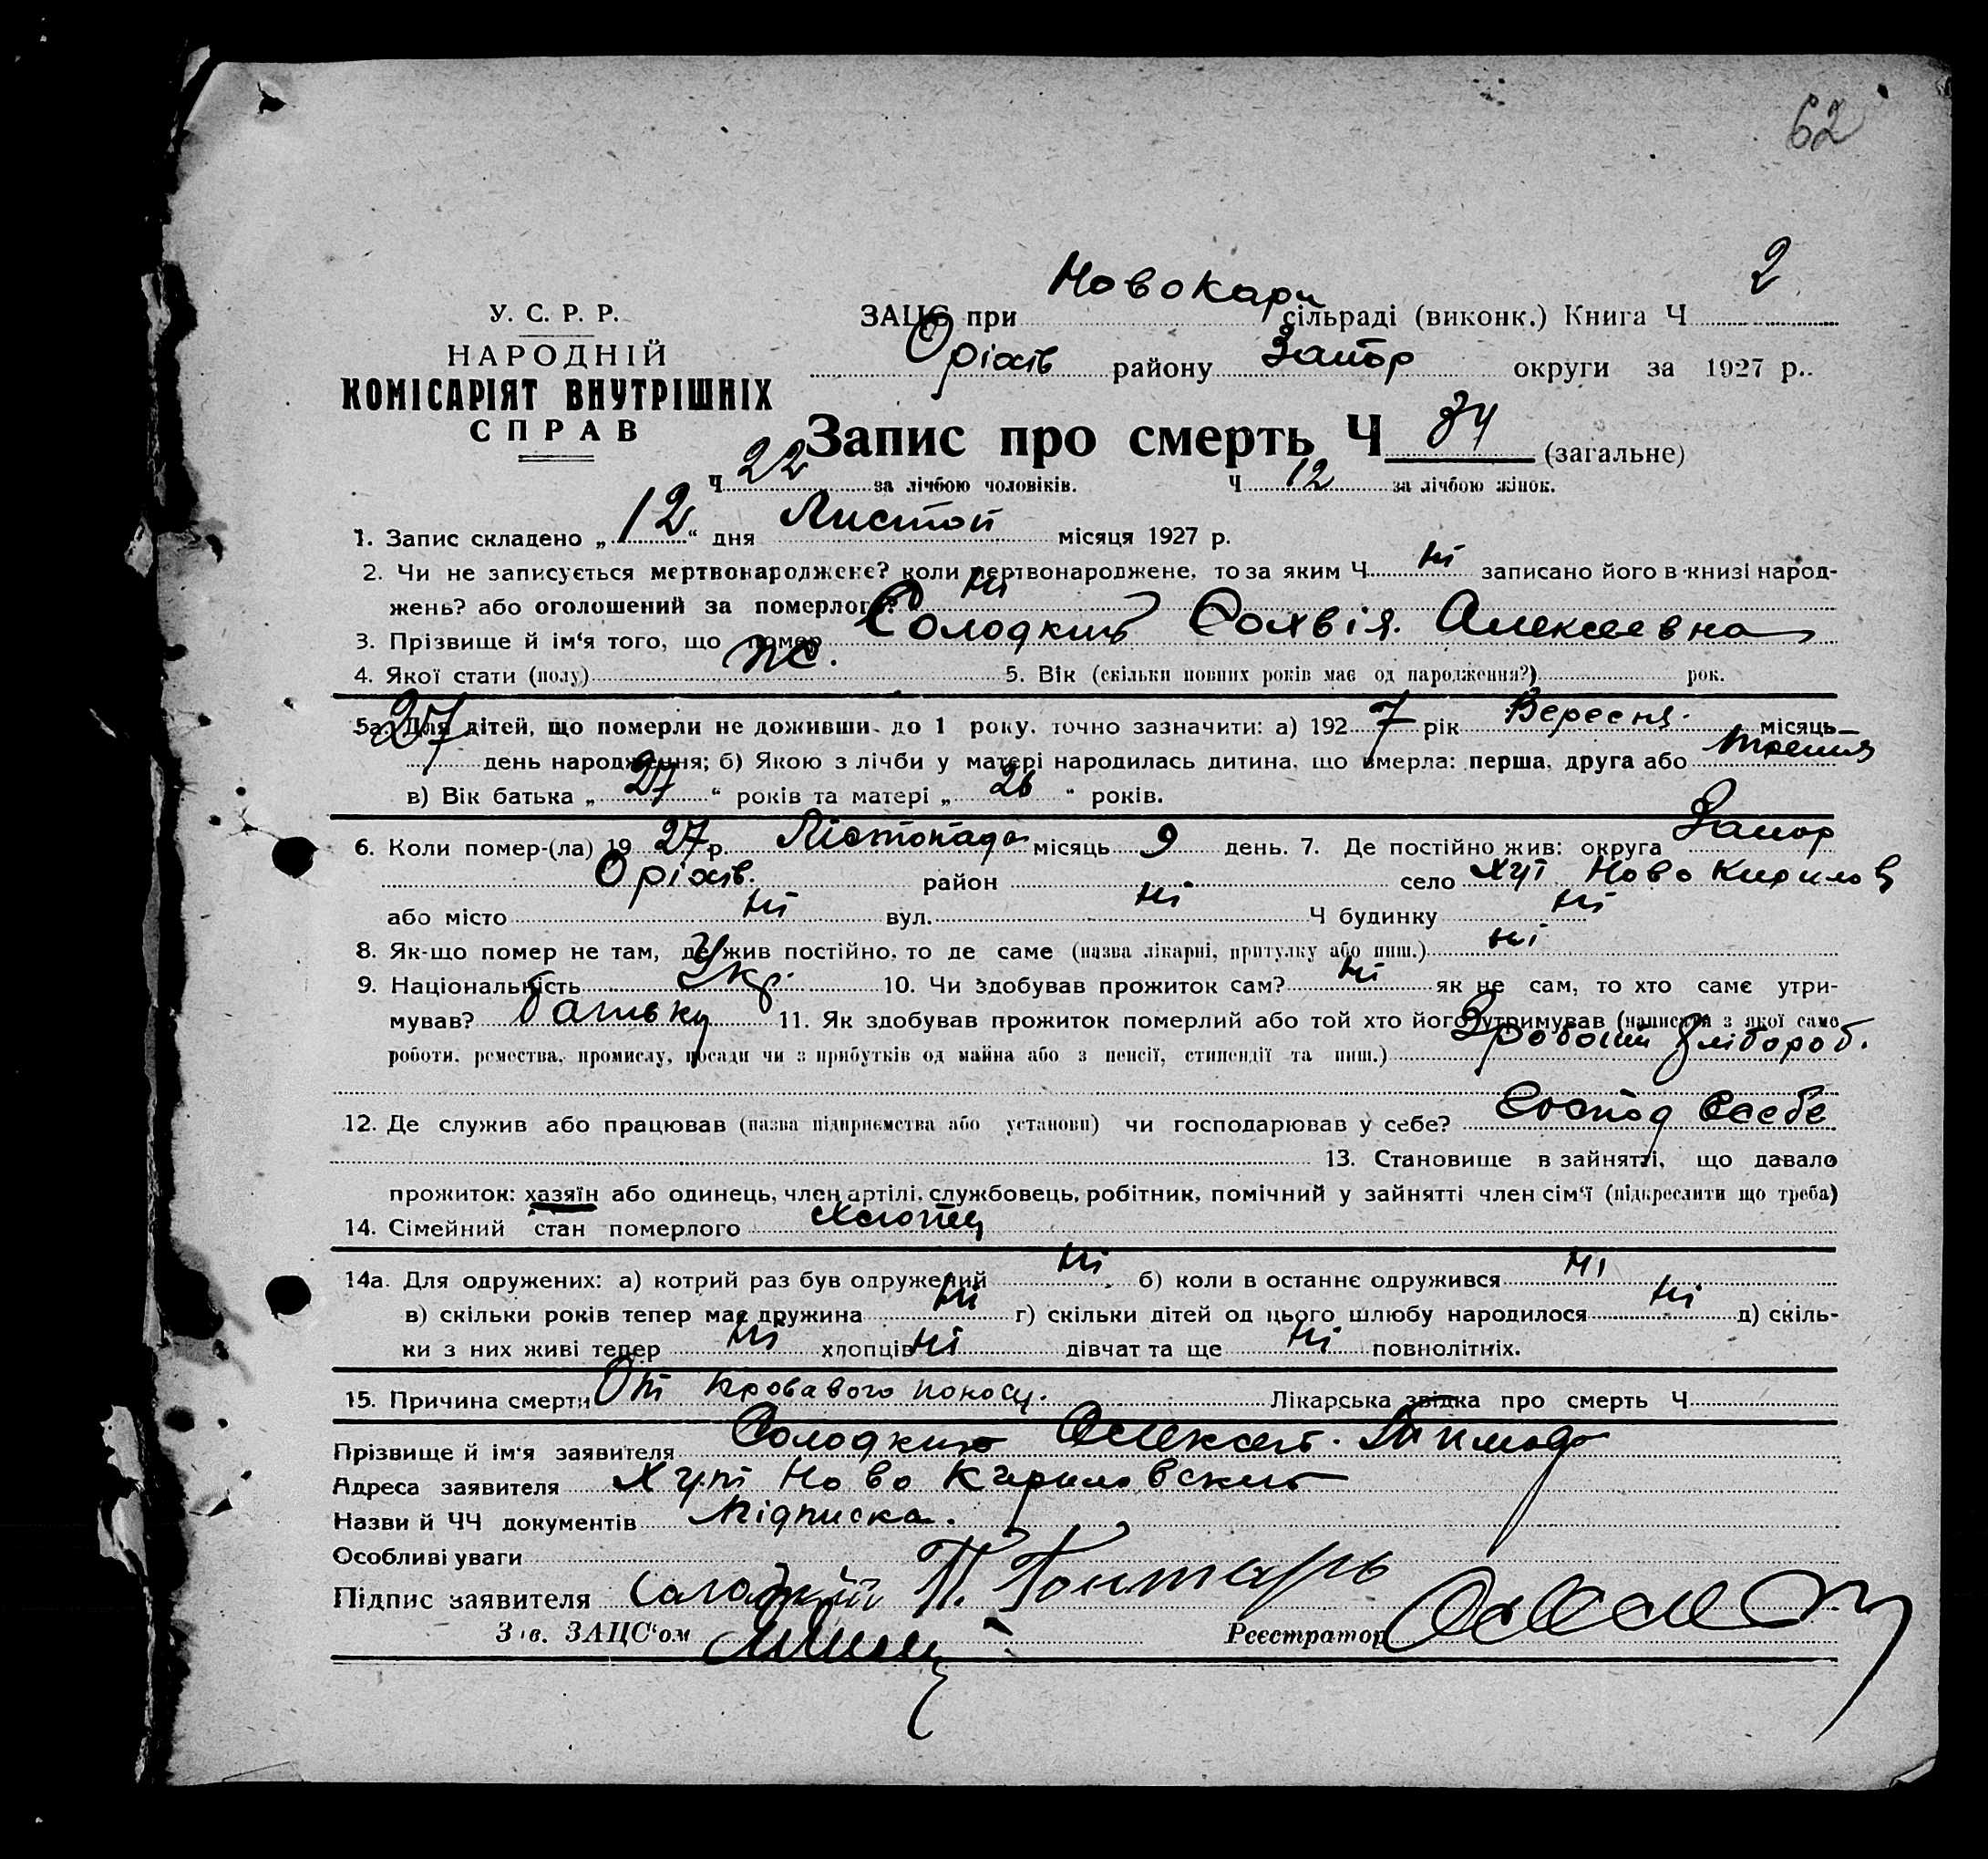 62
Новокари 2
У. С. Р. Р. ЗАЦС при сільраді (виконк.) Книга Ч
НАРОДНІЙ Оріхів району Запор округи за 1927 р.
КОМІСАРІЯТ ВНУТРІШНІХ
СПРАВ Запис про смерть Ч 34 (загальне)
Ч 22 за лічбою чоловіків. Ч 12 за лічбою жінок.
1. Запис складено „ 12 “ дня Листоп місяця 1927 р.
2. Чи не записується мертвонароджене? коли мертвонароджене, то за яким Ч ні записано його в книзі народ-
жень? або оголошений за померлого? ні
3. Прізвище й ім‘я того, що помер Солодкий Алексеевна
4. Якої стати (полу) ж. 5. Вік (скільки повних років має од народження?) рок.
5а. Для дітей, що померли не доживши до 1 року, точно зазначити: а) 192 7 рік Вересня. місяць
27 день народження; б) Якою з лічби у матері народилась дитина, що вмерла: перша, друга або
в) Вік батька „ 27 “ років та матері „ 26 “ років.
6. Коли помер-(ла) 19 27 р. Лістопада місяць 9 день. 7. Де постійно жив: округа Запор
Оріхів. район ні село хут Ново Кирилов
або місто ні вул. ні Ч будинку ні
8. Як-що помер не там, де жив постійно, то де саме (назва лікарні, притулку або инш.) ні
9. Національність Укр. 10. Чи здобував прожиток сам? ні як не сам, то хто саме утри-
мував? батьки 11. Як здобував прожиток померлий або той хто його утримував (написати з якої само
роботи, ремества, промислу, посади чи з прибутків од майна або з пенсії, стипендії та инш.) хлібороб.
12. Де служив або працював (назва підприємства або установи) чи господарював у себе? Господ
13. Становище в зайнятті, що давало
прожиток: хазяїн або одинець, член артілі, службовець, робітник, помічний у зайнятті член сім‘ї (підкреслити що треба)
14. Сімейний стан померлого
14а. Для одружених: а) котрий раз був одружений ні б) коли в останнє одружився ні
в) скільки років тепер має дружина ні г) скільки дітей од цього шлюбу народилося ні д) скіль-
ки з них живі тепер ні хлопців ні дівчат та ще ні повнолітніх.
15. Причина смерти От кровавого поносу. Лікарська звідка про смерть Ч
Прізвище й ім‘я заявителя Солодкий Алексей
Адреса заявителя Хут Ново Кириловский
Назви й ЧЧ документів Підписка.
Особливі уваги
Підпис заявителя П. Гонтарь
Зав. ЗАЦС‘ом Реєстратор